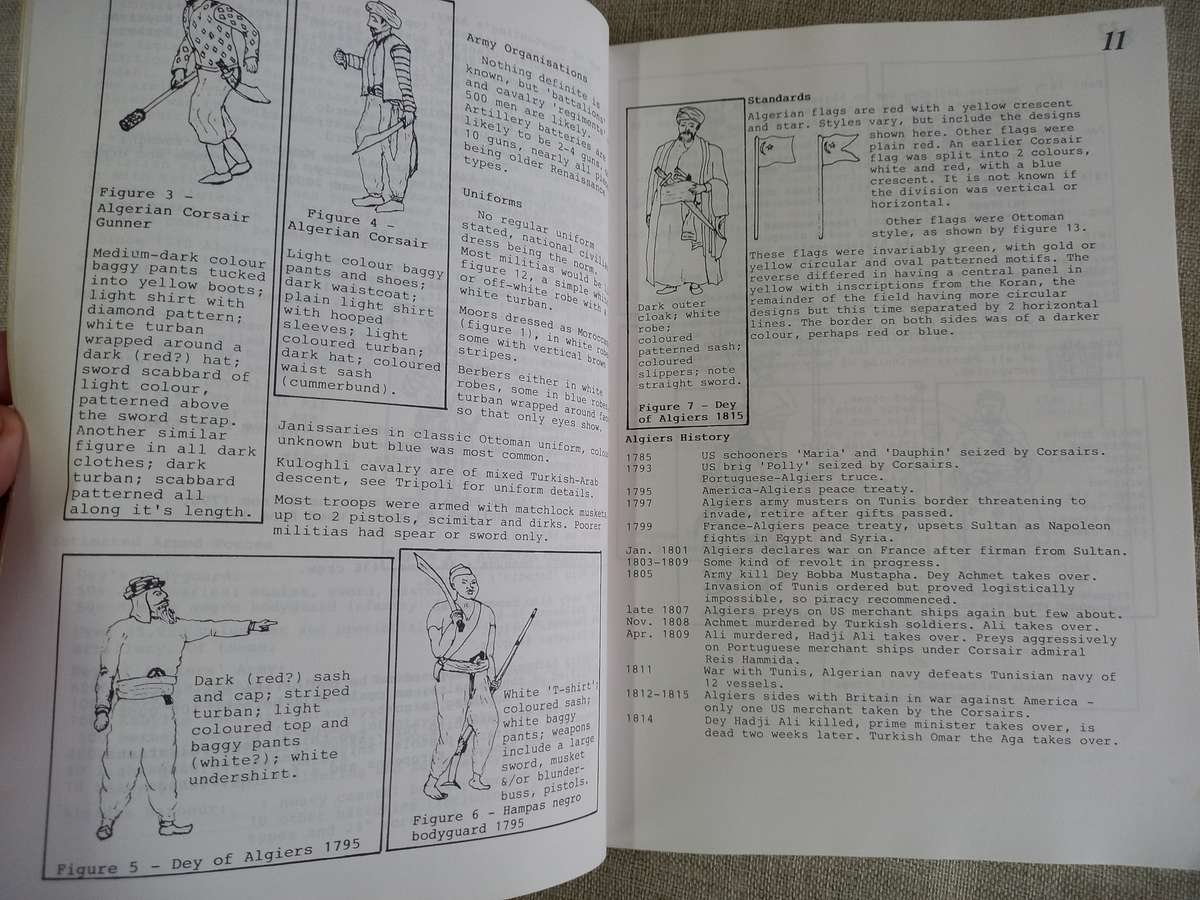 Figure 3 -
Algerian Corsair
Gunner
Medium-dark colour
baggy pants tucked
into yellow boots;
light shirt with
diamond pattern;
white turban
wrapped around a
dark (red?) hat;
sword scabbard of
light colour,
patterned above
the sword strap.
Another similar
figure in all dark
clothes; dark
turban; scabbard
patterned all
along it's length.
Figure 4 -
Algerian Corsair
Light colour baggy
pants and shoes;
dark waistcoat;
plain light shirt
with hooped
sleeves; light
coloured turban;
dark hat; coloured
waist sash
(cummerbund).
Army Organisations
Nothing definite is
known, but 'battalions'
and cavalry 'regiments'
500 men are likely.
Artillery batteries are
likely to be 2-4 guns,
10 guns, nearly all
being older Renaissance
types.
Uniforms
No regular uniform
stated, national
dress being the norm.
Most militias would be
figure 12, a simple white
or off-white robe with
white turban.
Moors dressed as
(figure 1), in white
some with vertical brown
stripes.
Berbers either in white
robes, some in blue robes,
turban wrapped around
so that only eyes show.
Janissaries in classic Ottoman uniform,
unknown but blue was most common.
Kuloghli cavalry are of mixed Turkish-Arab
descent, see Tripoli for uniform details.
Most troops were armed with matchlock muskets
up to 2 pistols, scimitar and dirks. Poorer
militias had spear or sword only.
Dark (red?) sash
and cap; striped
turban; light
coloured top and
baggy pants
(white?); white
undershirt.
Figure 5 - Dey of Algiers 1795
White 'T-shirt';
coloured sash;
white baggy
pants; weapons
include a large
sword, musket
&/or blunder-
buss, pistols.
Figure 6 - Hampas negro
bodyguard 1795
11
Dark outer
cloak; white
robe;
coloured
patterned sash;
coloured
slippers; note
straight sword.
Figure 7 - Dey
of Algiers 1815
Standards
Algerian flags are red with a yellow crescent
and star. Styles vary, but include the designs
shown here. Other flags were
plain red. An earlier Corsair
flag was split into 2 colours,
white and red, with a blue
crescent. It is not known if
the division was vertical or
horizontal.
Other flags were Ottoman
style, as shown by figure 13.
These flags were invariably green, with gold or
yellow circular and oval patterned motifs. The
reverse differed in having a central panel in
yellow with inscriptions from the Koran, the
remainder of the field having more circular
designs but this time separated by 2 horizontal
lines. The border on both sides was of a darker
colour, perhaps red or blue.
Algiers History
1785 US schooners 'Maria' and 'Dauphin' seized by Corsairs.
1793 US brig 'Polly' seized by Corsairs.
Portuguese-Algiers truce.
1795 America-Algiers peace treaty.
1797 Algiers army musters on Tunis border threatening to
invade, retire after gifts passed.
1799 France-Algiers peace treaty, upsets Sultan as Napoleon
fights in Egypt and Syria.
Jan. 1801 Algiers declares war on France after firman from Sultan.
1803-1809 Some kind of revolt in progress.
1805 Army kill Dey Bobba Mustapha. Dey Achmet takes over.
Invasion of Tunis ordered but proved logistically
impossible, so piracy recommenced.
late 1807 Algiers preys on US merchant ships again but few about.
Nov. 1808 Achmet murdered by Turkish soldiers. Ali takes over.
Apr. 1809 Ali murdered, Hadji Ali takes over. Preys aggressively
on Portuguese merchant ships under Corsair admiral
Reis Hammida.
1811 War with Tunis, Algerian navy defeats Tunisian navy of
12 vessels.
1812-1815 Algiers sides with Britain in war against America -
only one US merchant taken by the Corsairs.
1814 Dey Hadji Ali killed, prime minister takes over, is
dead two weeks later. Turkish Omar the Aga takes over.